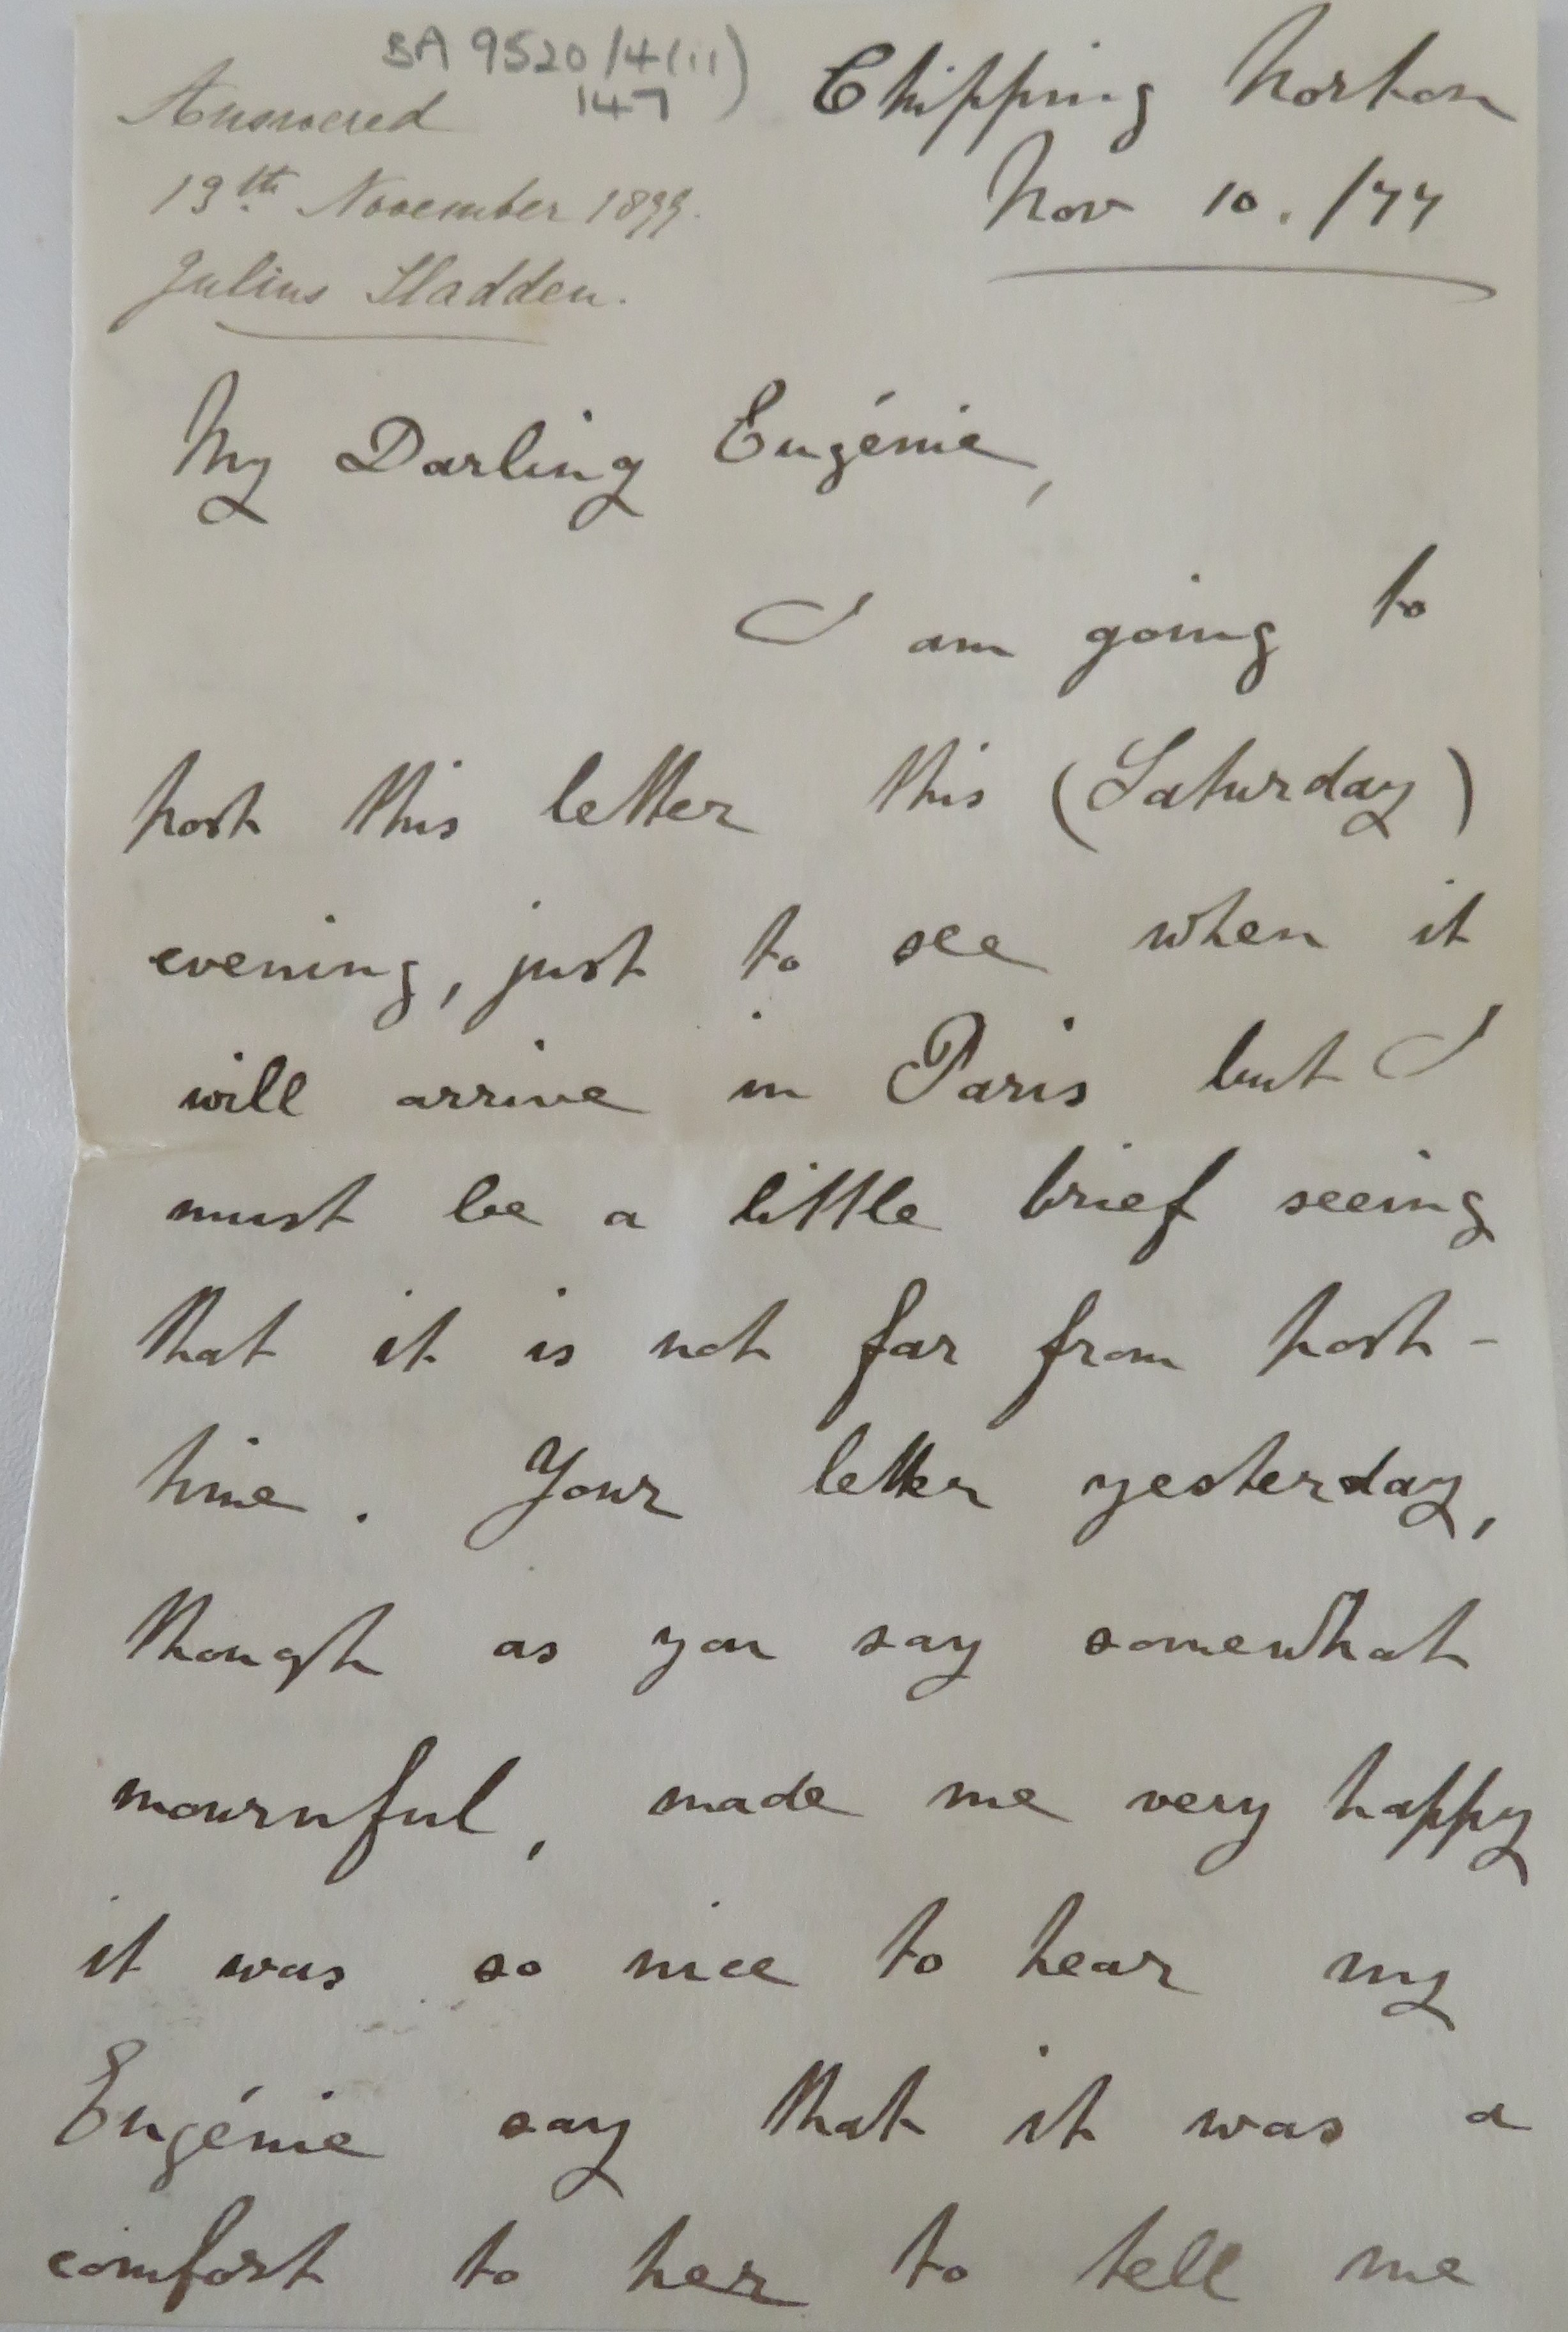 BA 9520/4(ii)
147)
Answered
13th November 1877.
Julius Sladden.
Chipping Norton
Nov 10. /77
My Darling Eugénie,
I am going to
post this letter this (Saturday)
evening, just to see when it
will arrive in Paris but I
must be a little brief seeing
that it is not far from post-
time. Your letter yesterday,
though as you say somewhat
mournful, made me very happy
it was so nice to hear my
Eugénie say that it was a
comfort to her to tell me